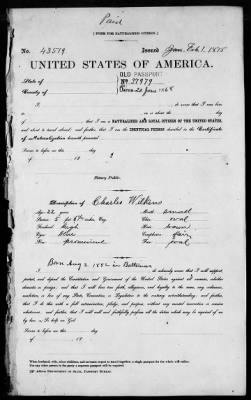 Paid
[FORM FOR NATURALIZED CITIZEN.]
No. 43519 Issued Feb. 1. 1875
UNITED STATES OF AMERICA.
OLD PASSPORT
State of No. 27979
County of Dated 20 June 1868
I, do swear that I was born
in on or about the day
of that I am a NATURALIZED AND LOYAL CITIZEN OF THE UNITED STATES,
and about to travel abroad; and further, that I am the IDENTICAL PERSON described in the Certificate
of Naturalization herewith presented.
Sworn to before me, this day
of 18
Notary Public.
Description of Charles Wilkins
Age: 22 years Mouth: small
Stature: 5 feet inches, Eng. Chin: oval
Forehead: high Hair: brown
Eyes: blue Complexion: fair
Nose: prominent Face: oval
Born Aug 2 1852 in Baltimore
I, do solemnly swear that I will support,
protect, and defend the Constitution and Government of the United States against all enemies, whether
domestic or foreign; and that I will bear true faith, allegiance, and loyalty to the same, any ordinance,
resolution, or law of any State, Convention, or Legislature to the contrary notwithstanding; and further,
that I do this with a full determination, pledge, and purpose, without any mental reservation or evasion
whatsoever; and further, that I will well and faithfully perform all the duties which may be required of me
by law: So help me God.
Sworn to before me, this day
of 18